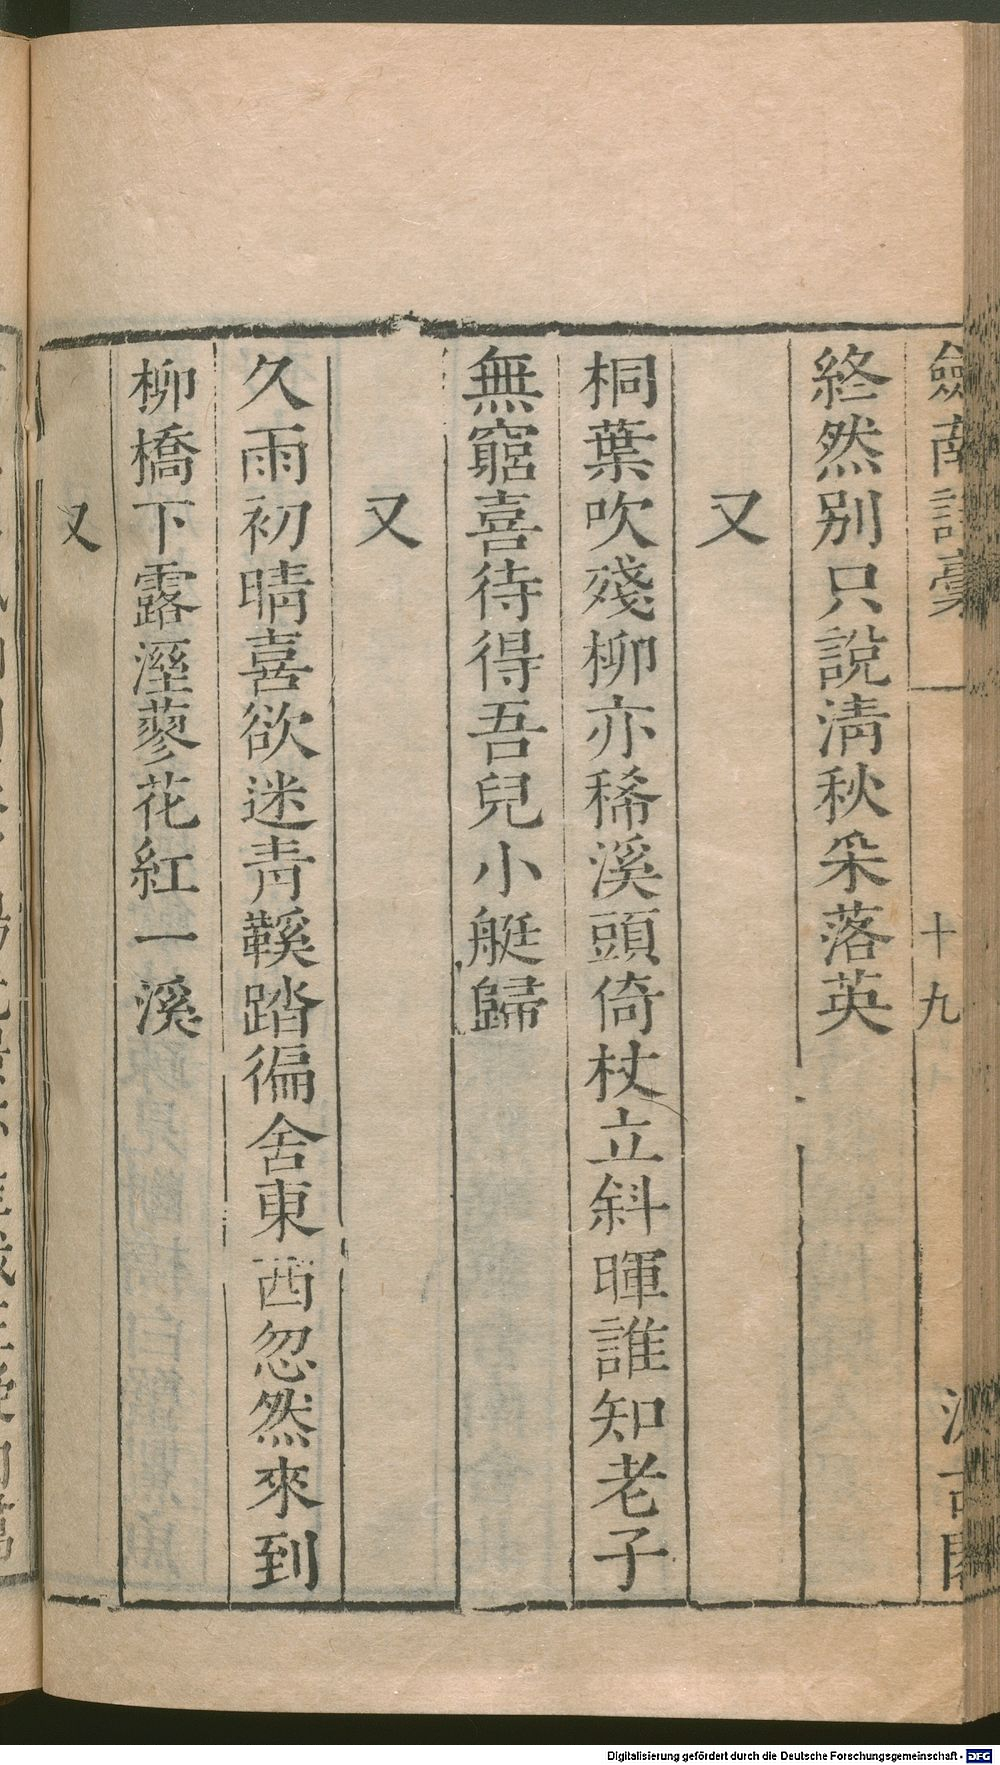 劒南詩藁 十九 汲古閣
終然别只說淸秋朵落英
又
桐葉吹殘柳亦稀溪頭倚杖立斜暉誰知老子
無窮喜待得吾兒小艇歸
又
久雨初晴喜欲迷青鞵踏徧舍東西忽然來到
柳橋下露溼蓼花紅一溪
又
Digitalisierung gefördert durch die Deutsche Forschungsgemeinschaft - DFG